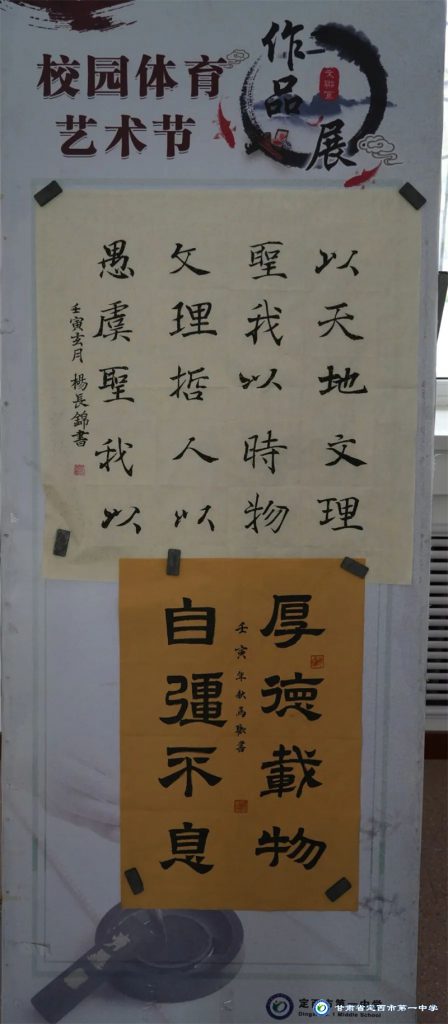 校园体育
艺术节
作品展
以天地文理
聖我以時物
文理哲人以
愚虞聖我以
壬寅玄月 楊長錦書
厚德載物
壬寅年秋馬書
自彊不息
定西市第一中学
甘肃省定西市第一中学